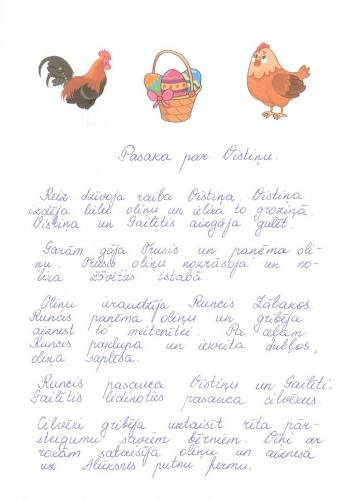 Pasaka par Vistiņu.
Reiz dzīvoja raiba Vistiņa. Vistiņa
izdēja lielu oliņu un ielika to groziņā.
Vistiņa un Gailītis aizgāja gulēt.
Garām gāja Trusis un paņēma oli-
ņu. Trusis oliņu nokrāsoja un no-
lika istabā.
Oliņu ieraudzīja Runcis Zābakos
Runcis paņēma oliņu un gribēja
aiznest to meitenītei. Pa ceļam
Runcis paklupa un iekrita dubļos,
oliņa saplīsa.
Runcis pasauca Vistiņu un Gailīti.
Gailītis lidinoties pasauca cilvēkus.
Cilvēki gribēja uztaisīt rīta pār-
steigumu saviem bērniem. Viņi ar
rokām salaisīja oliņu un aiznesa
uz Alūksnes putnu fermu.